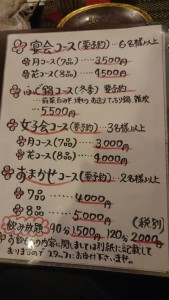 宴会コース(要予約)…6名様以上
月コース(7品)……3500円
花コース(8品)……4500円
ふぐ鍋コース(冬季)要予約
5,500円
女子会コース(要予約)…3名様以上
月コース(7品)…3,000円
花コース(8品)…4,000円
おまかせコース(要予約)…2名様以上
7品……4,000円
8品……5,000円
(税別)
飲み放題 90分1500円 120分2000円
お飲物の内容に関しましては別紙に記載して
ありますのでスタッフにお声がけ下さいませ。